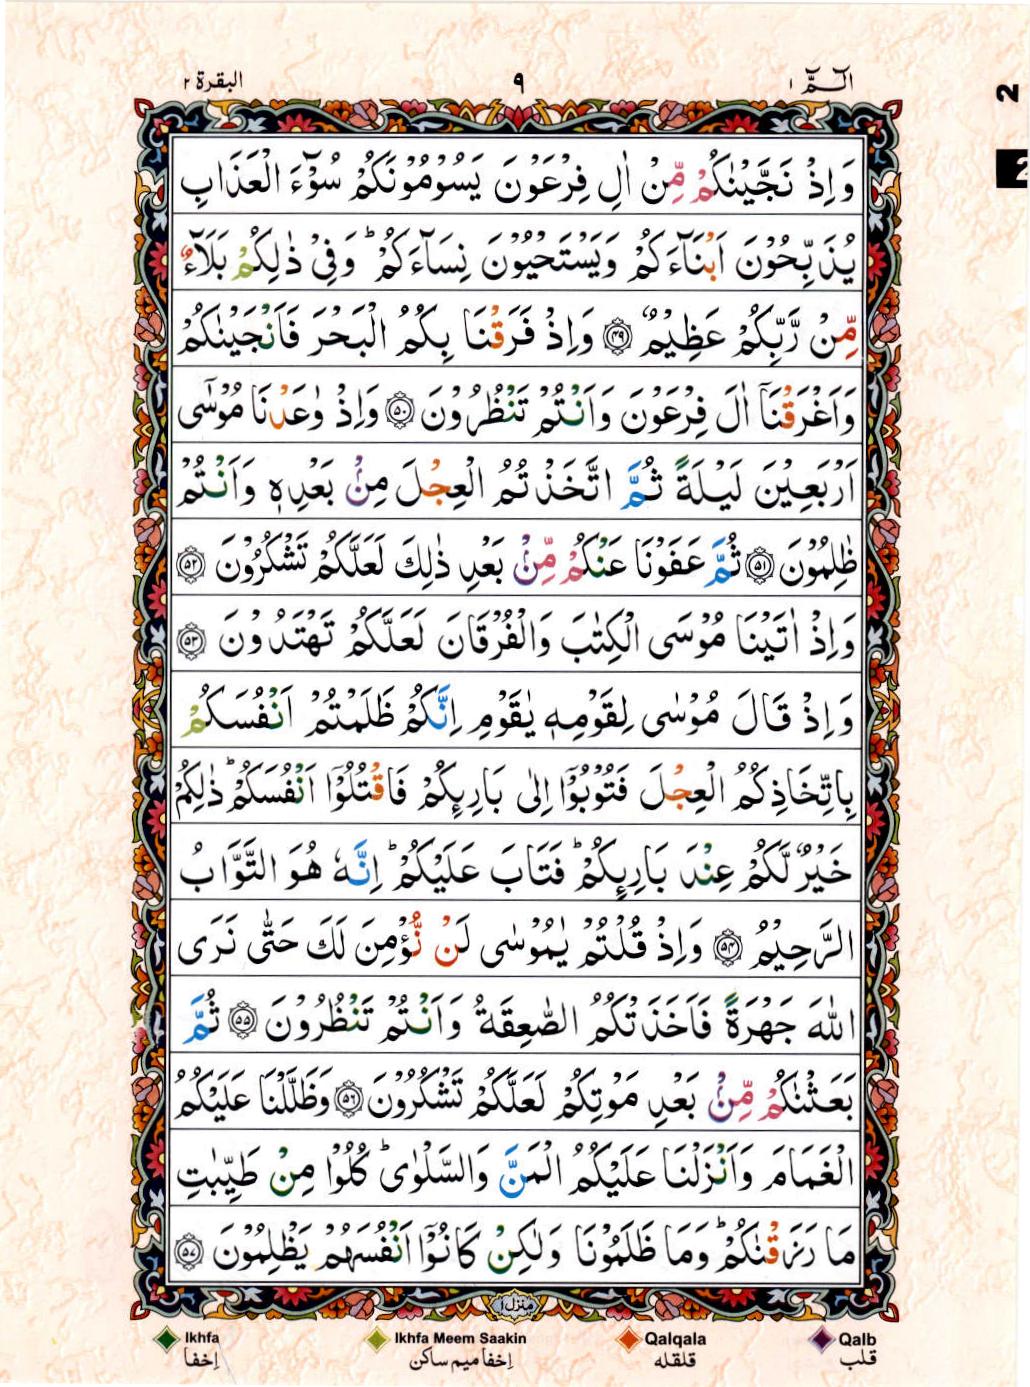 الٓمّٓ ۱
۹
البقرة ۲
2
2
وَاِذْ نَجَّيْنٰكُمْ مِّنْ اٰلِ فِرْعَوْنَ يَسُوْمُوْنَكُمْ سُوْٓءَ الْعَذَابِ
يُذَبِّحُوْنَ اَبْنَآءَكُمْ وَيَسْتَحْيُوْنَ نِسَآءَكُمْ ؕ وَفِيْ ذٰلِكُمْ بَلَآءٌ
مِّنْ رَّبِّكُمْ عَظِيْمٌ ﴿۴۹﴾ وَاِذْ فَرَقْنَا بِكُمُ الْبَحْرَ فَاَنْجَيْنٰكُمْ
وَاَغْرَقْنَاۤ اٰلَ فِرْعَوْنَ وَاَنْتُمْ تَنْظُرُوْنَ ﴿۵۰﴾ وَاِذْ وٰعَدْنَا مُوْسٰۤى
اَرْبَعِيْنَ لَيْلَةً ثُمَّ اتَّخَذْتُمُ الْعِجْلَ مِنْۢ بَعْدِهٖ وَاَنْتُمْ
ظٰلِمُوْنَ ﴿۵۱﴾ ثُمَّ عَفَوْنَا عَنْكُمْ مِّنْۢ بَعْدِ ذٰلِكَ لَعَلَّكُمْ تَشْكُرُوْنَ ﴿۵۲﴾
وَاِذْ اٰتَيْنَا مُوْسَى الْكِتٰبَ وَالْفُرْقَانَ لَعَلَّكُمْ تَهْتَدُوْنَ ﴿۵۳﴾
وَاِذْ قَالَ مُوْسٰى لِقَوْمِهٖ يٰقَوْمِ اِنَّكُمْ ظَلَمْتُمْ اَنْفُسَكُمْ
بِاتِّخَاذِكُمُ الْعِجْلَ فَتُوْبُوْۤا اِلٰى بَارِئِكُمْ فَاقْتُلُوْۤا اَنْفُسَكُمْ ؕ ذٰلِكُمْ
خَيْرٌ لَّكُمْ عِنْدَ بَارِئِكُمْ ؕ فَتَابَ عَلَيْكُمْ ؕ اِنَّهٗ هُوَ التَّوَّابُ
الرَّحِيْمُ ﴿۵۴﴾ وَاِذْ قُلْتُمْ يٰمُوْسٰى لَنْ نُّؤْمِنَ لَكَ حَتّٰى نَرَى
اللّٰهَ جَهْرَةً فَاَخَذَتْكُمُ الصّٰعِقَةُ وَاَنْتُمْ تَنْظُرُوْنَ ﴿۵۵﴾ ثُمَّ
بَعَثْنٰكُمْ مِّنْۢ بَعْدِ مَوْتِكُمْ لَعَلَّكُمْ تَشْكُرُوْنَ ﴿۵۶﴾ وَظَلَّلْنَا عَلَيْكُمُ
الْغَمَامَ وَاَنْزَلْنَا عَلَيْكُمُ الْمَنَّ وَالسَّلْوٰى ؕ كُلُوْا مِنْ طَيِّبٰتِ
مَا رَزَقْنٰكُمْ ؕ وَمَا ظَلَمُوْنَا وَلٰكِنْ كَانُوْۤا اَنْفُسَهُمْ يَظْلِمُوْنَ ﴿۵۷﴾
منزل ۱
Ikhfa
اِخفا
Ikhfa Meem Saakin
اِخفا میم ساکن
Qalqala
قلقله
Qalb
قلب